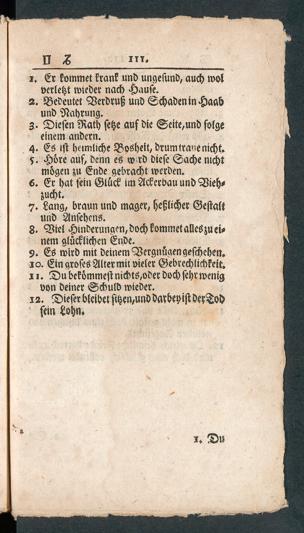 III.
1. Er kommet krank und ungesund, auch wol
verletzt wieder nach Hause.
2. Bedeutet Verdruß und Schaden in Haab
und Nahrung.
3. Diesen Rath setze auf die Seite, und folge
einem andern.
4. Es ist heimliche Bosheit, drum traue nicht.
5. Höre auf, denn es wird diese Sache nicht
mögen zu Ende gebracht werden.
6. Er hat sein Glück im Ackerbau und Vieh-
zucht.
7. Lang, braun und mager, heßlicher Gestalt
und Ansehens.
8. Viel Hinderungen, doch kommet alles zu ei-
nem glücklichen Ende.
9. Es wird mit deinem Vergnügen geschehen.
10. Ein groses Alter mit vieler Gebrechlichkeit.
11. Du bekömmest nichts, oder doch sehr wenig
von deiner Schuld wieder.
12. Dieser bleibet sitzen, und darbey ist der Tod
sein Lohn.
1. Du